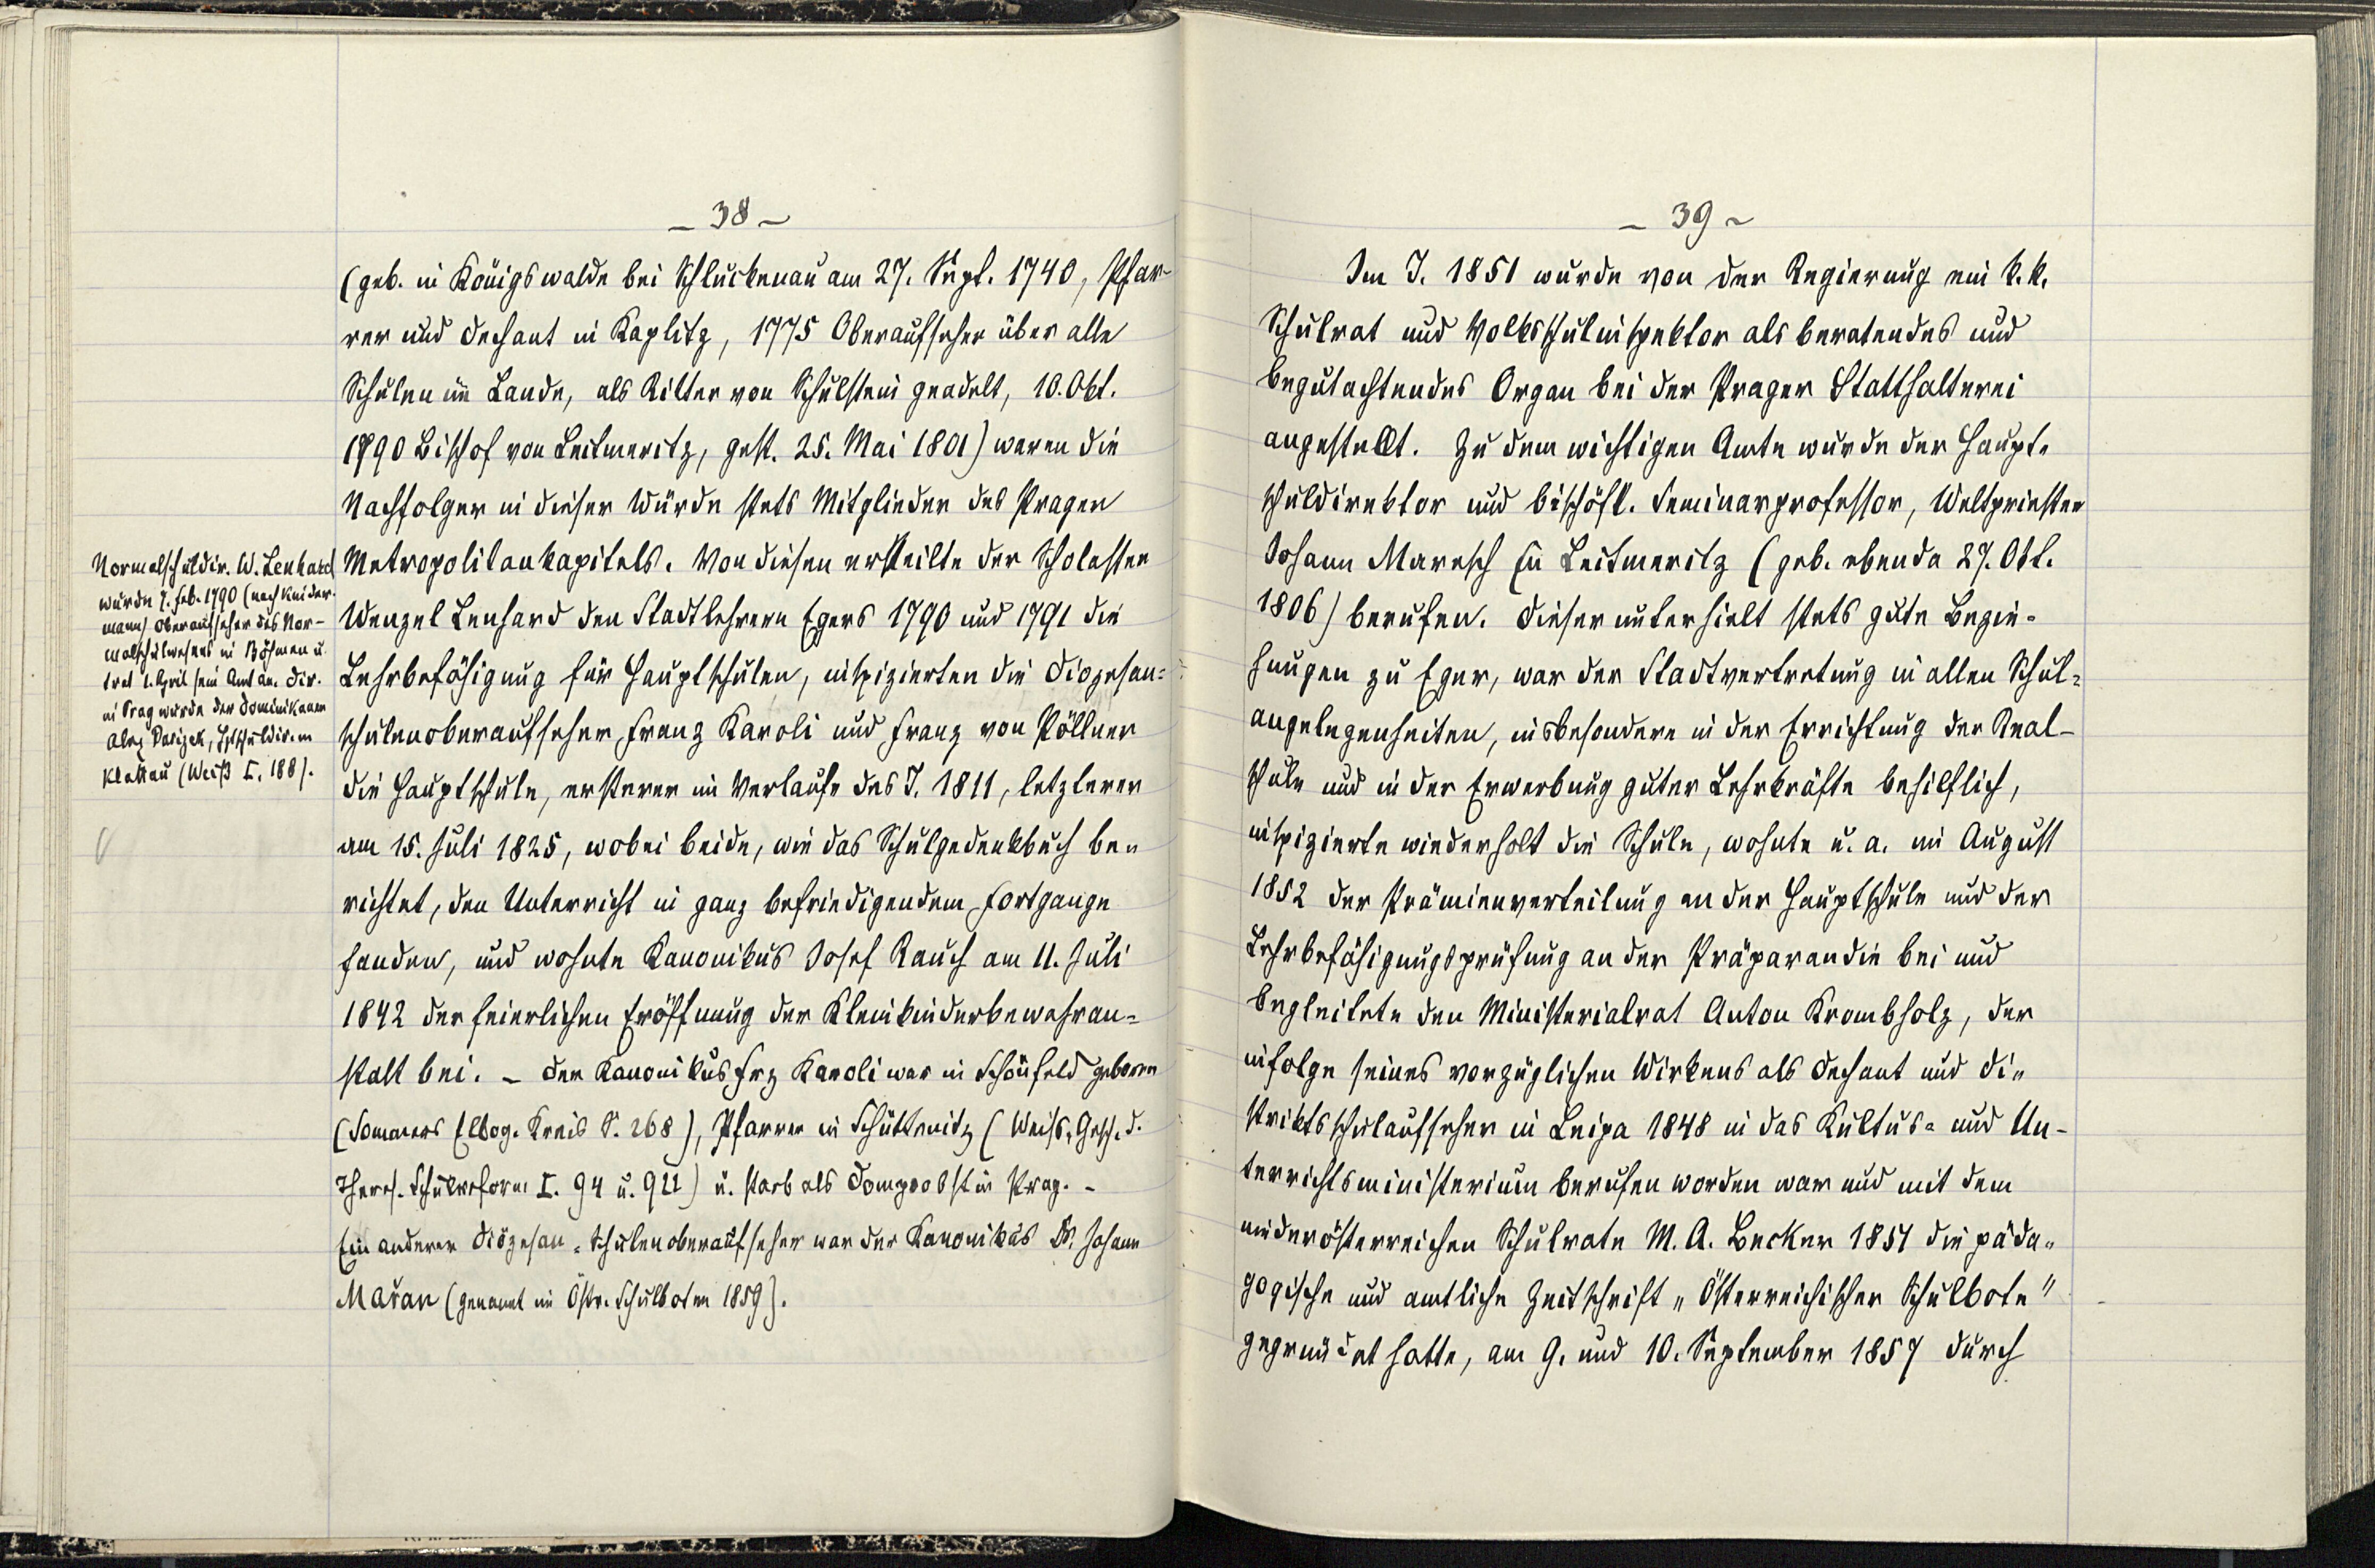 – 38 –
(geb. in Königswalde bei Schluckenau am 27. Sept. 1740, Pfar-
rer und Dechant in Kaplitz, 1775 Oberaufseher über alle
Schulen im Lande, als Ritter von Schulstein geadelt, 10. Okt.
1790 Bischof von Leitmeritz, gest. 25. Mai 1801) waren die
Nachfolger in dieser Würde stets Mitglieder des Prager
Metropolitankapitels. Von diesen erteilte der Scholaster
Wenzel Lenhard den Stadtlehrern Egers 1790 und 1791 die
Lehrbefähigung für Hauptschulen, inspizierten die Diozesan-
schulenoberaufseher Franz Karoli und Franz von Pöllner
die Hauptschule, ersterer im Verlaufe des J. 1811, letzterer
am 15. Juli 1825, wobei beide, wie das Schulgedenkbuch be-
richtet, den Unterricht in ganz befriedigendem Fortgange
fanden, und wohnte Kanonikus Josef Rauch am 11. Juli
1842 der feierlichen Eröffnung der Kleinkinderbewahran-
stalt bei. – Der Kanonikus Frz Karoli war in Schönfeld geboren
(Sommers Elbog. Kreis S. 268), Pfarrer in Schüttenitz (Weiss, Gesch. d.
Theres. Schulreform I. 94 u. 922) u. starb als Domprobst in Prag. –
Ein anderer Diözesan-Schulenoberaufseher war der Kanonikus Dr. Johann
Mařan (genannt im Östr. Schulboten 1859).
Normalschuldir. W. Lenhard
wurde 7. Feb. 1790 (nach Kinder-
mann) Oberaufseher des Nor-
malschulwesens in Böhmen u.
trat 1. April sein Amt an. Dir.
in Prag wurde der Dominikaner
Alex Parizek, Hptschuldir. in
Klattau (Weiß I. 188).
– 39 –
Im J. 1851 wurde von der Regierung ein k. k.
Schulrat und Volksschulinspektor als beratendes und
begutachtendes Organ bei der Prager Statthalterei
angestellt. Zu dem wichtigen Amte wurde der Haupt-
schuldirektor und bischöfl. Seminarprofessor, Weltpriester
Johann Maresch in Leitmeritz (geb. ebenda 27. Okt.
1806) berufen. Dieser unterhielt stets gute Bezie-
hungen zu Eger, war der Stadtvertretung in allen Schul-
angelegenheiten, insbesondere in der Errichtung der Real-
schule und in der Erwerbung guter Lehrkräfte behilflich,
inspizierte wiederholt die Schule, wohnte u. a. im August
1852 der Prämienverteilung an der Hauptschule und der
Lehrbefähigungsprüfung an der Präparandie bei und
begleitete den Ministerialrat Anton Krombholz, der
infolge seines vorzüglichen Wirkens als Dechant und Di-
striktsschulaufseher in Leipa 1848 in das Kultus- und Un-
terrichtsministerium berufen worden war und mit dem
niederösterreichen Schulrate M. A. Becker 1851 die päda-
gogische und amtliche Zeitschrift „Österreichischer Schulbote"
gegründet hatte, am 9. und 10. September 1857 durch